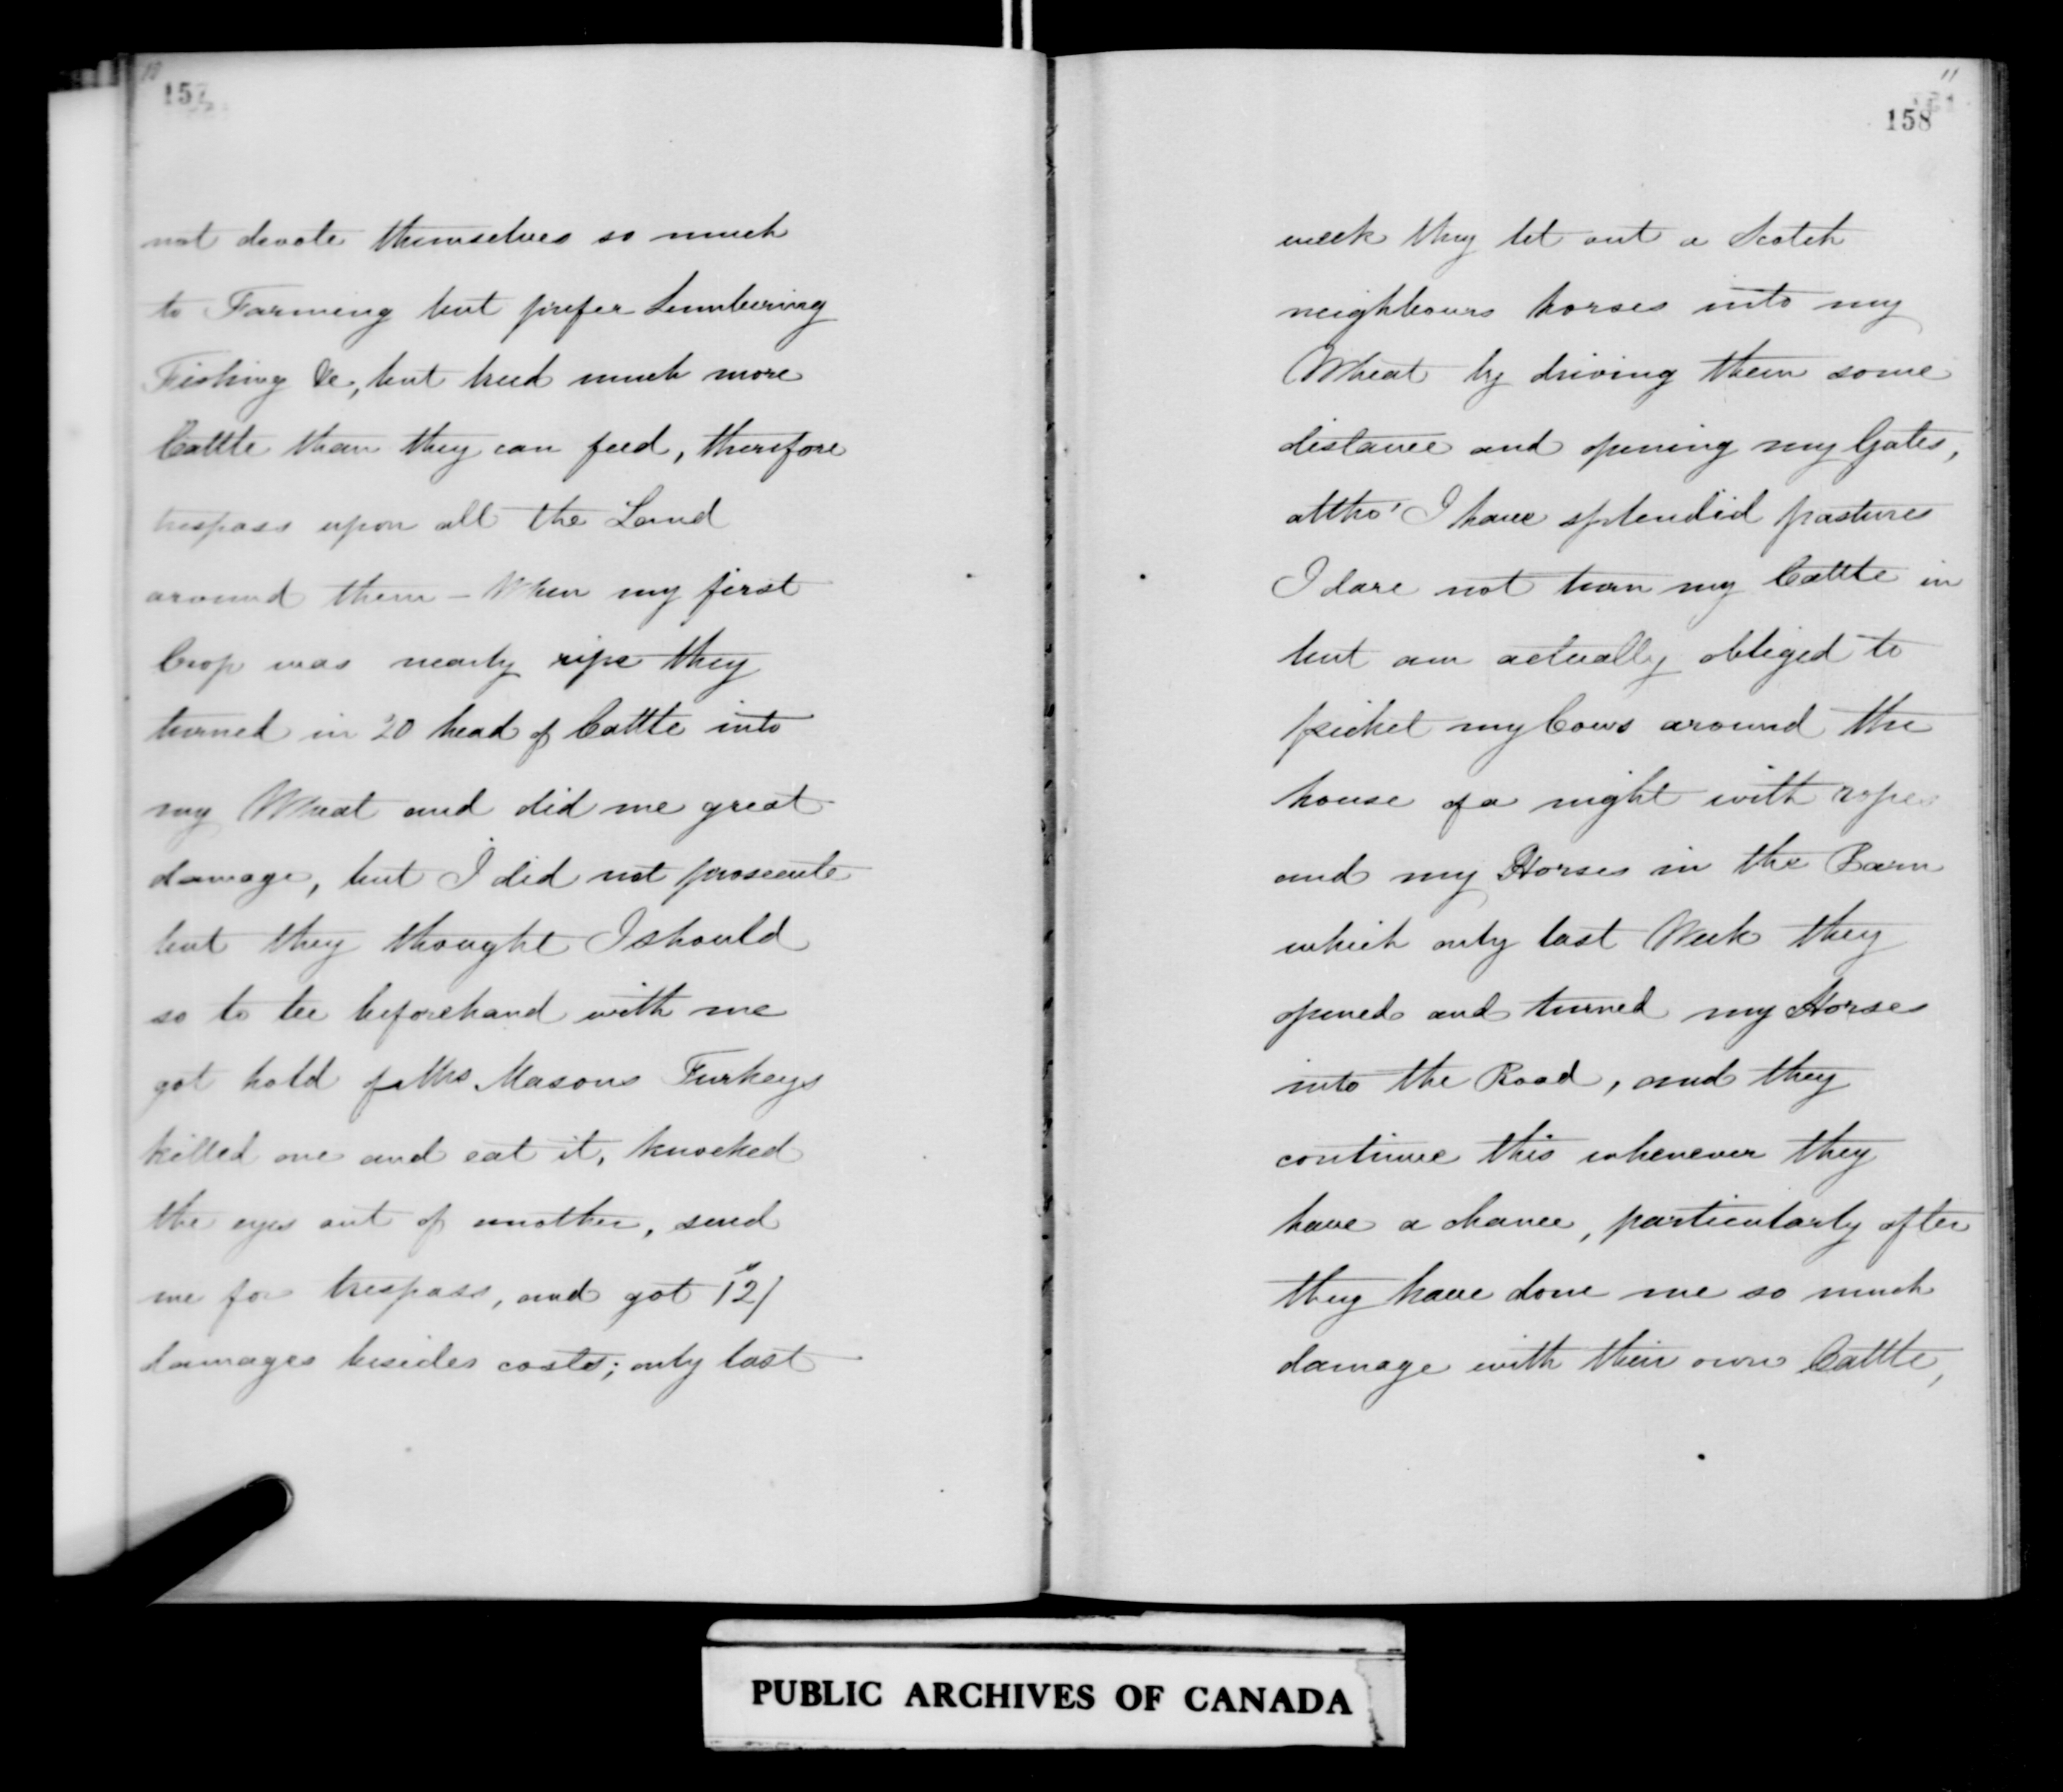 10
157
not devote themselves so much
to Farming but prefer Lumbering
Fishing &c, but breed much more
Cattle than they can feed, therefore
trespass upon all the Land
around them – When my first
Crop was nearly ripe they
turned in 20 head of Cattle into
my Wheat and did me great
damage, but I did not prosecute
but they thought I should
so to be beforehand with me
got hold of Mrs Masons Turkeys
killed one and eat it, knocked
the eyes out of another, sued
me for trespass, and got 12/
damages besides costs; only last
11
158
week they let out a Scotch
neighbours horses into my
Wheat by driving them some
distance and opening my Gates,
altho' I have splendid pastures
I dare not turn my Cattle in
but am actually obliged to
picket my Cows around the
house of a night with ropes
and my Horses in the Barn
which only last Week they
opened and turned my Horses
into the Road, and they
continue this whenever they
have a chance, particularly after
they have done me so much
damage with their own Cattle,
PUBLIC ARCHIVES OF CANADA